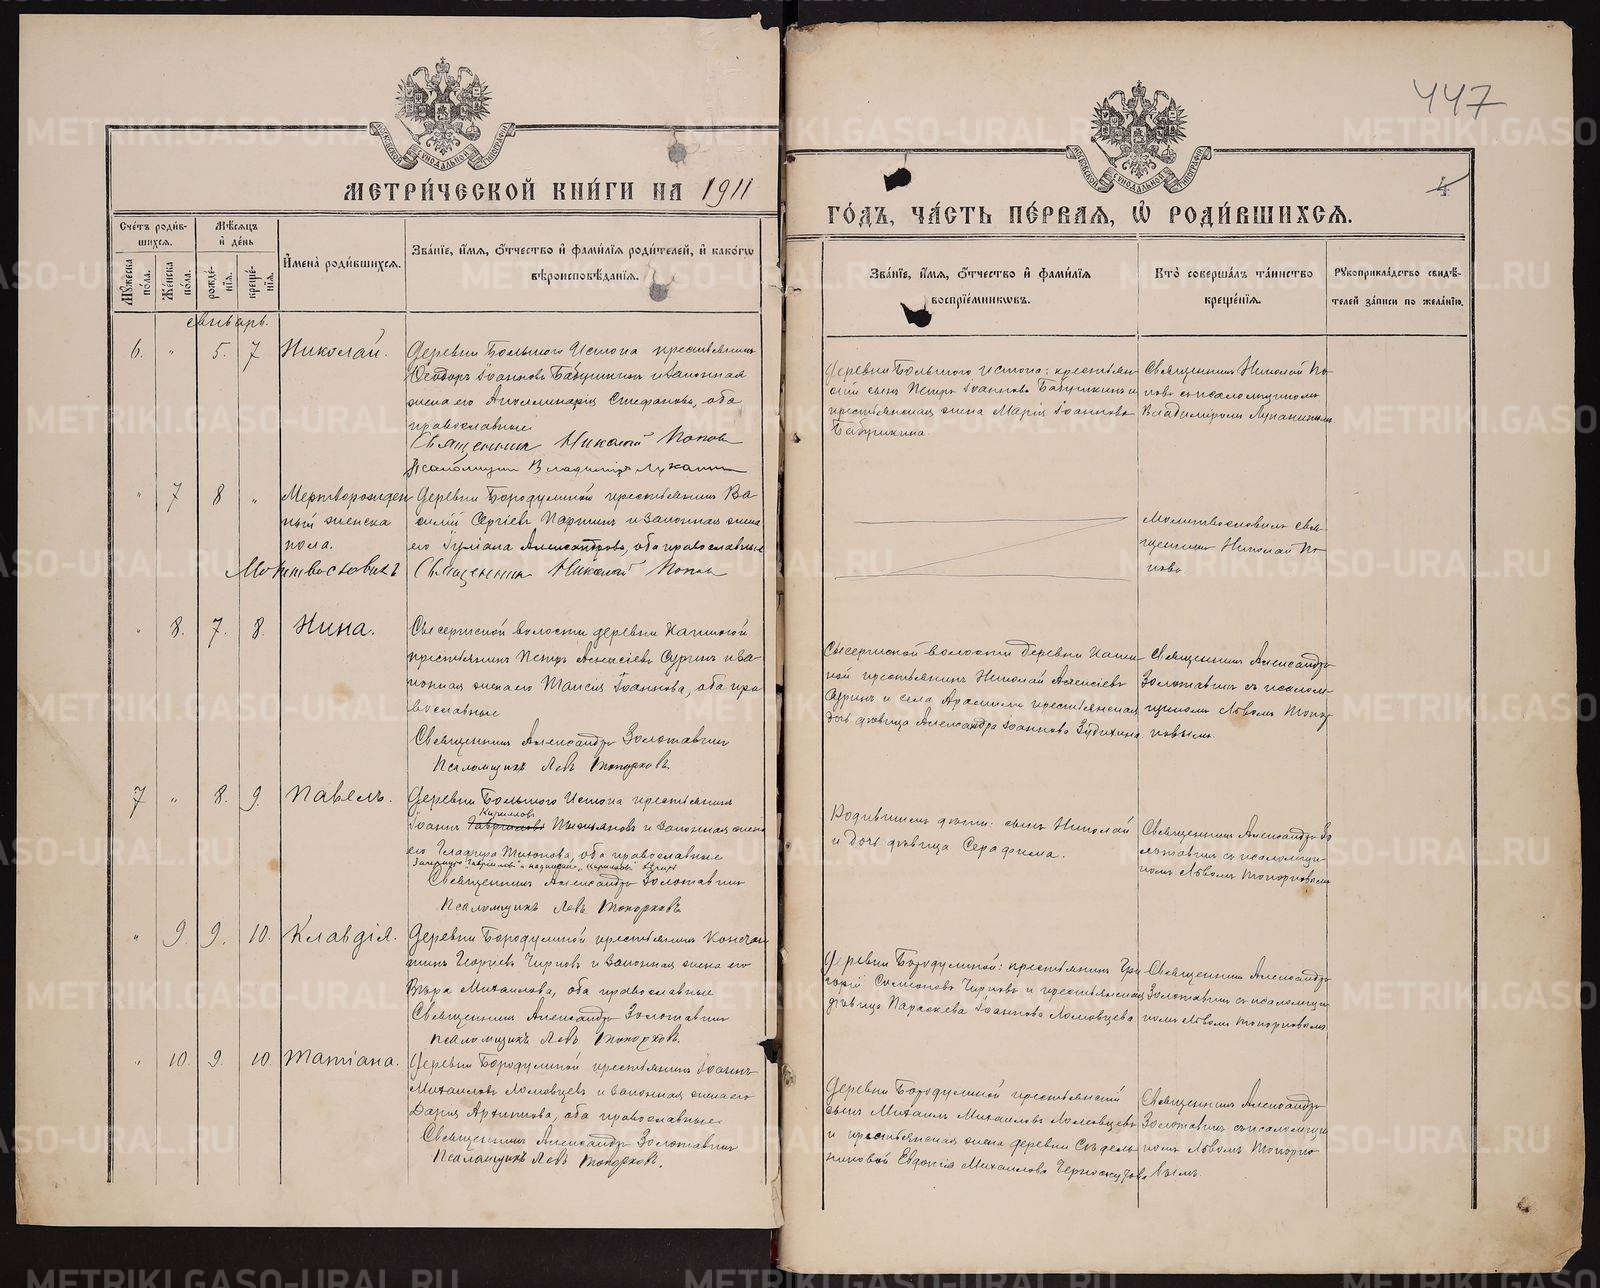 447
4
МЕТРИ́ЧЕСКОЙ КНИ́ГИ НА 1911
ГО́ДЪ, ЧА́СТЬ ПЕ́РВАЯ, Ѡ РОДИ́ВШИХСЯ.
Сче́тъ роди́вшихся.
Мужеска по́ла.
Же́нска по́ла.
Мѣ́сяцъ и́ де́нь
рожде́нія.
креще́нія.
И҆мена̀ роди́вшихся.
Зва́ніе, и҆́мя, ѻ҆́тчество и҆ фами́лія роди́телей, и҆ како́гѡ
вѣроисповѣ́данія.
Зва́ніе, и҆́мя, ѻ҆́тчество и҆ фами́лія
воспрїе́мникѡвъ.
Кто̀ соверша́лъ та́инство
креще́нія.
Рукоприкла́дство свидѣ́-
телей за́писи по жела́нію.
январь.
6. " 5. 7 Николай.
Деревни Большого Истока крестьянинъ
Ѳеодоръ Іоанновъ Бабушкинъ и законная
жена его Аполлинарія Стефанова, оба
православные
Священникъ Николай Поповъ
Псаломщикъ Владиміръ Луканинъ
Деревни Большого Истока: крестьян-
скій сынъ Петръ Іоанновъ Бабушкинъ и
крестьянская жена Марія Іоаннова
Бабушкина
Священникъ Николай По-
повъ съ псаломщикомъ
Владиміромъ Луканинымъ
" 7 8 " Мертворожден
ный женска
пола.
Деревни Бородулиной крестьянинъ Ва-
силій Сергіевъ Паршинъ и законная жена
его Іуліана Александрова, оба православные
Молитвословилъ Священникъ Николай Поповъ
Молитвословилъ свя-
щенникъ Николай По-
повъ
" 8. 7. 8. Нина.
Сысертской волости деревни Кашиной
крестьянинъ Петръ Алексіевъ Суринъ и за-
конная жена его Таисія Іоаннова, оба пра
вославные
Священникъ Александръ Золотавинъ
Псаломщикъ Левъ Топорковъ.
Сысертской волости деревни Каши-
ной крестьянинъ Николай Алексіевъ
Суринъ и села Арамили крестьянская
дочь дѣвица Александра Іоаннова
Священникъ Александръ
Золотавинъ съ псалом-
щикомъ Львомъ Топор
ковымъ.
7 " 8. 9. Павелъ.
Деревни Большого Истока крестьянинъ
Кирилловъ
Іоаннъ Гавриловъ и законная жена
его Глафира Тихонова, оба православные
Священникъ Александръ Золотавинъ
Псаломщикъ Левъ Топорковъ
Родившихъ дѣти: сынъ Николай
и дочь дѣвица Серафима.
Священникъ Александръ Зо
лотавинъ съ псаломщи-
комъ Львомъ Топорковымъ
" 9. 9. 10. Клавдія.
Деревни Бородулиной крестьянинъ Констан
тинъ Георгіевъ Чирковъ и законная жена его
Вѣра Михаилова, оба православные
Священникъ Александръ Золотавинъ
псаломщикъ Левъ Топорковъ.
Деревни Бородулиной: крестьянинъ Гри
горій Симеоновъ Чирковъ и крестьянская
дѣвица Параскева Іоаннова Ломовцева
Священникъ Александръ
Золотавинъ съ псаломщи
комъ Львомъ Топорковымъ
" 10. 9. 10 Татіана.
Деревни Бородулиной крестьянинъ Іоаннъ
Михаиловъ Ломовцевъ и законная жена его
Дарія Архипова, оба православные
Священникъ Александръ Золотавинъ
Псаломщикъ Левъ Топорковъ.
Деревни Бородулиной крестьянскій
сынъ Михаилъ Михаиловъ Ломовцевъ
и крестьянская жена деревни Сѣдель
никовой Евдокія Михаилова
Священникъ Александръ
Золотавинъ съ псаломщи
комъ Львомъ Топорко
вымъ.
METRIKI.GASO-URAL.RU